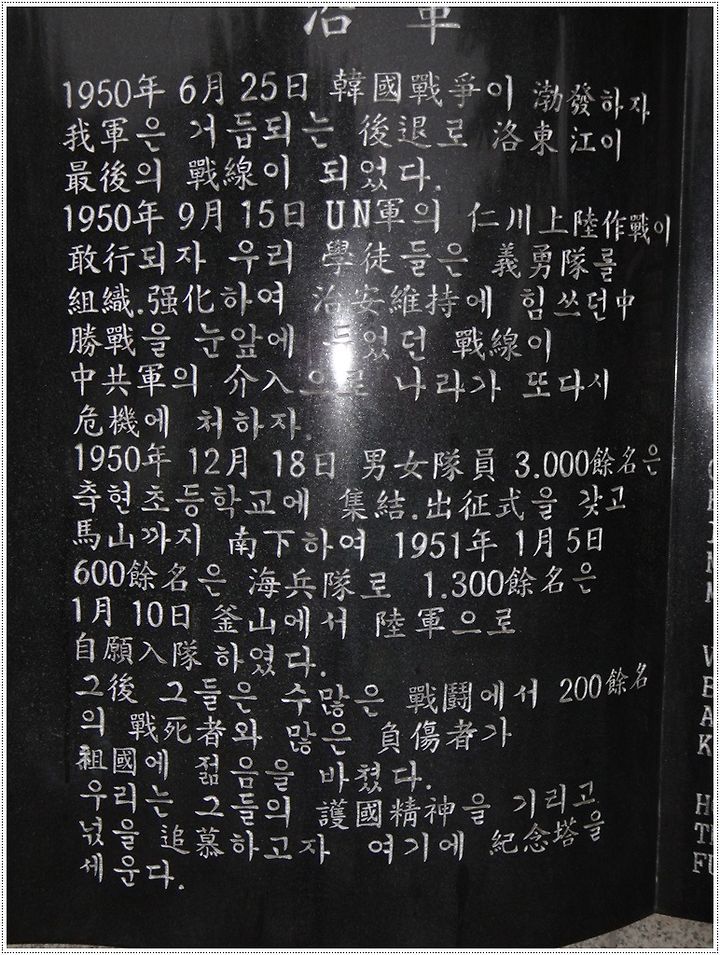 沿革
1950年 6月 25日 韓國戰爭이 渤發하자
我軍은 거듭되는 後退로 洛東江이
最後의 戰線이 되었다.
1950年 9月 15日 UN軍의 仁川上陸作戰이
敢行되자 우리 學徒들은 義勇隊를
組織.强化하여 治安維持에 힘쓰던中
勝戰을 눈앞에 두었던 戰線이
中共軍의 介入으로 나라가 또다시
危機에 처하자.
1950年 12月 18日 男女隊員 3.000餘名은
축현초등학교에 集結.出征式을 갖고
馬山까지 南下하여 1951年 1月 5日
600餘名은 海兵隊로 1.300餘名은
1月 10日 釜山에서 陸軍으로
自願入隊 하였다.
그後 그들은 수많은 戰鬪에서 200餘名
의 戰死者와 많은 負傷者가
祖國에 젊음을 바쳤다.
우리는 그들의 護國精神을 기리고
넋을 追慕하고자 여기에 紀念塔을
세운다.